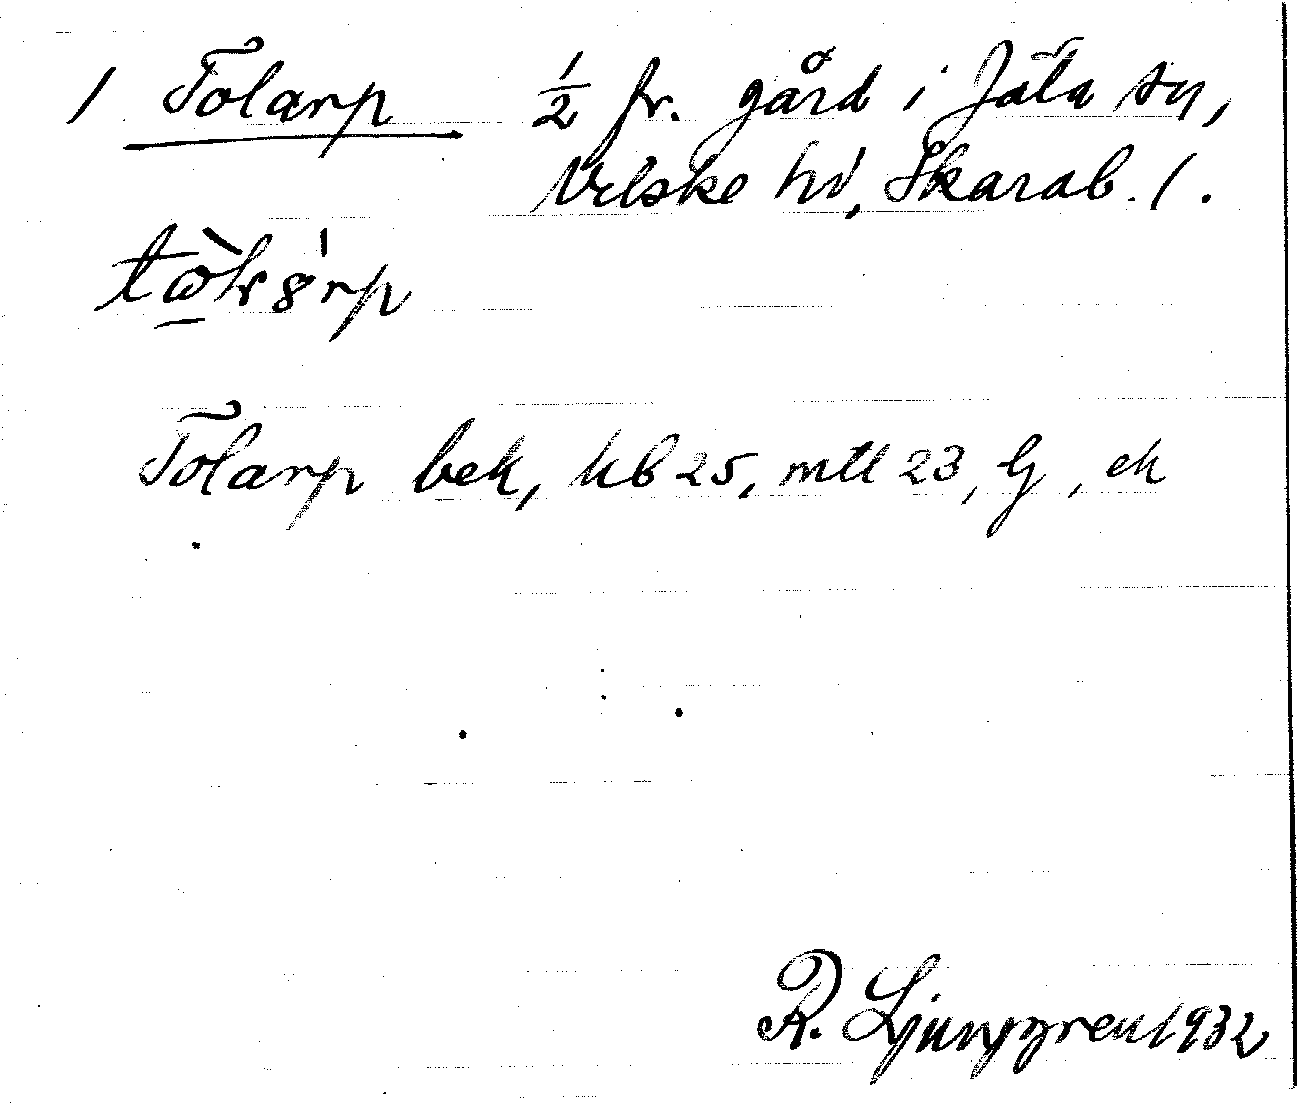 1 Tolarp ½ fr. gård i Jäla sn,
Vilske hd, Skarab. l.
Tolarp bek, kb 25, mtl 23, Lj, ek
R. Ljunggren 1932